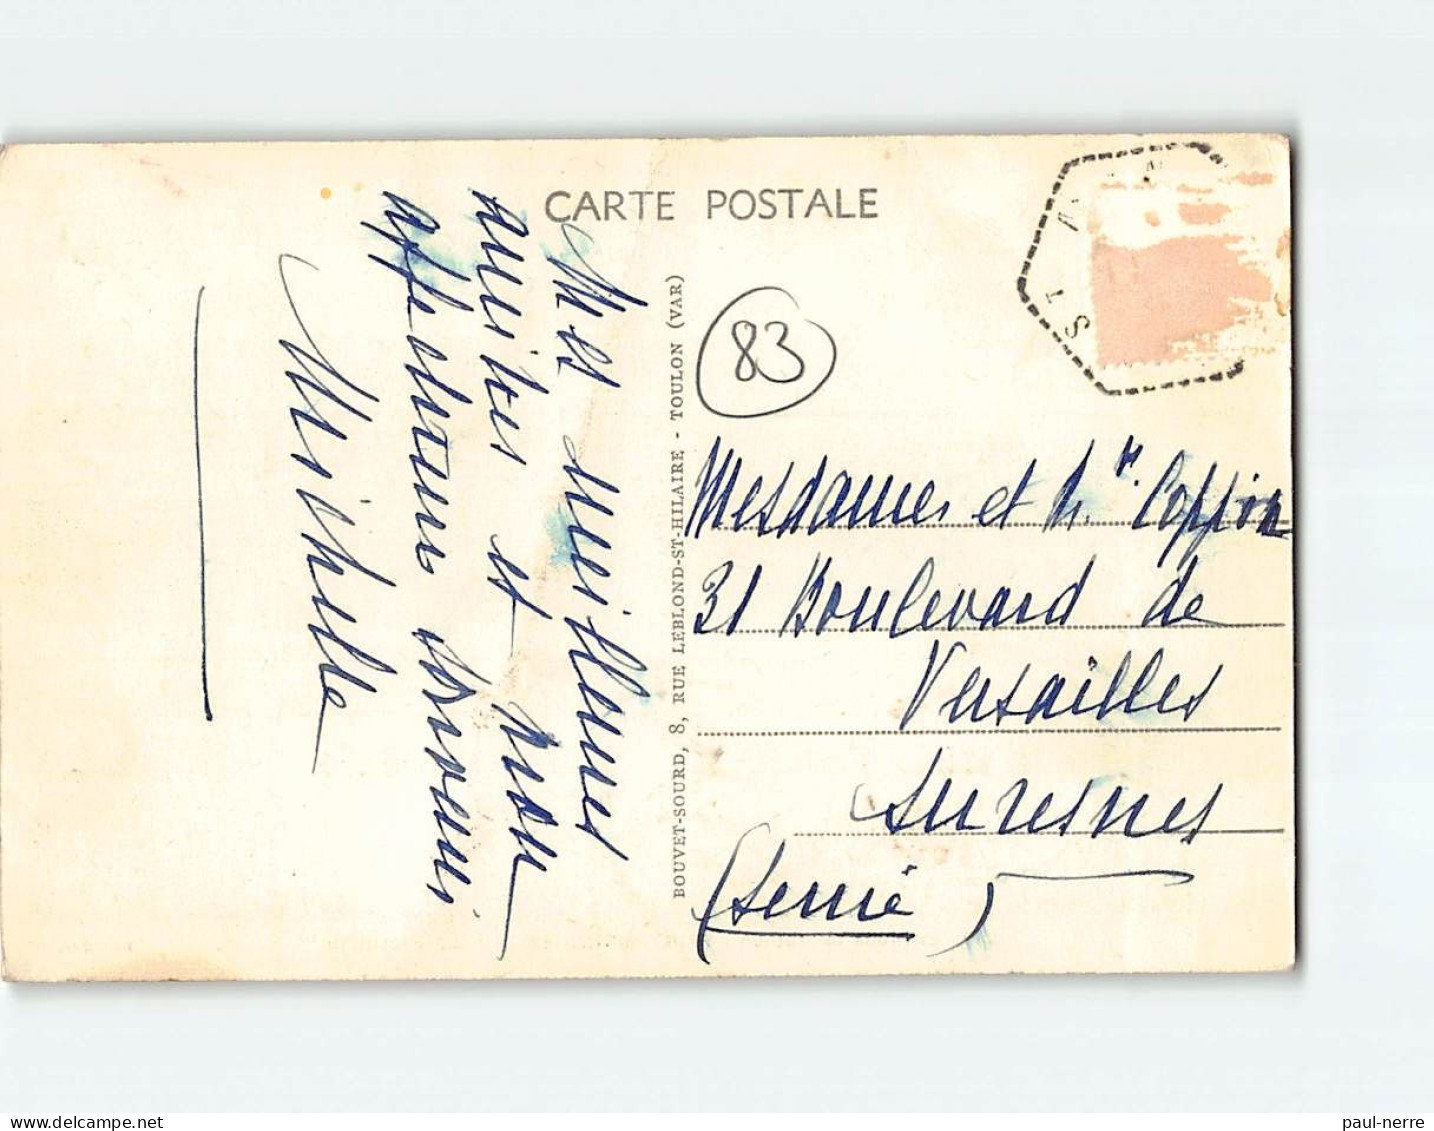 CARTE POSTALE
ST
83
Mes meilleures
amitiés et mon
affectueux souvenir
Michelle
BOUVET-SOURD, 8, RUE LEBLOND-ST-HILAIRE - TOULON (VAR)
Mesdames et Coppin
31 Boulevard de
Versailles
Suresnes
(Seine)
paul-nerre